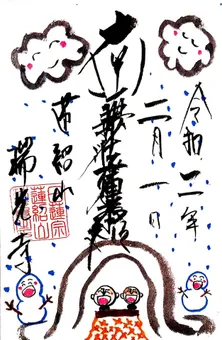 令和二年
二月一日
南無妙法蓮華経
蓮紹山
瑞光寺
日蓮宗
蓮紹山